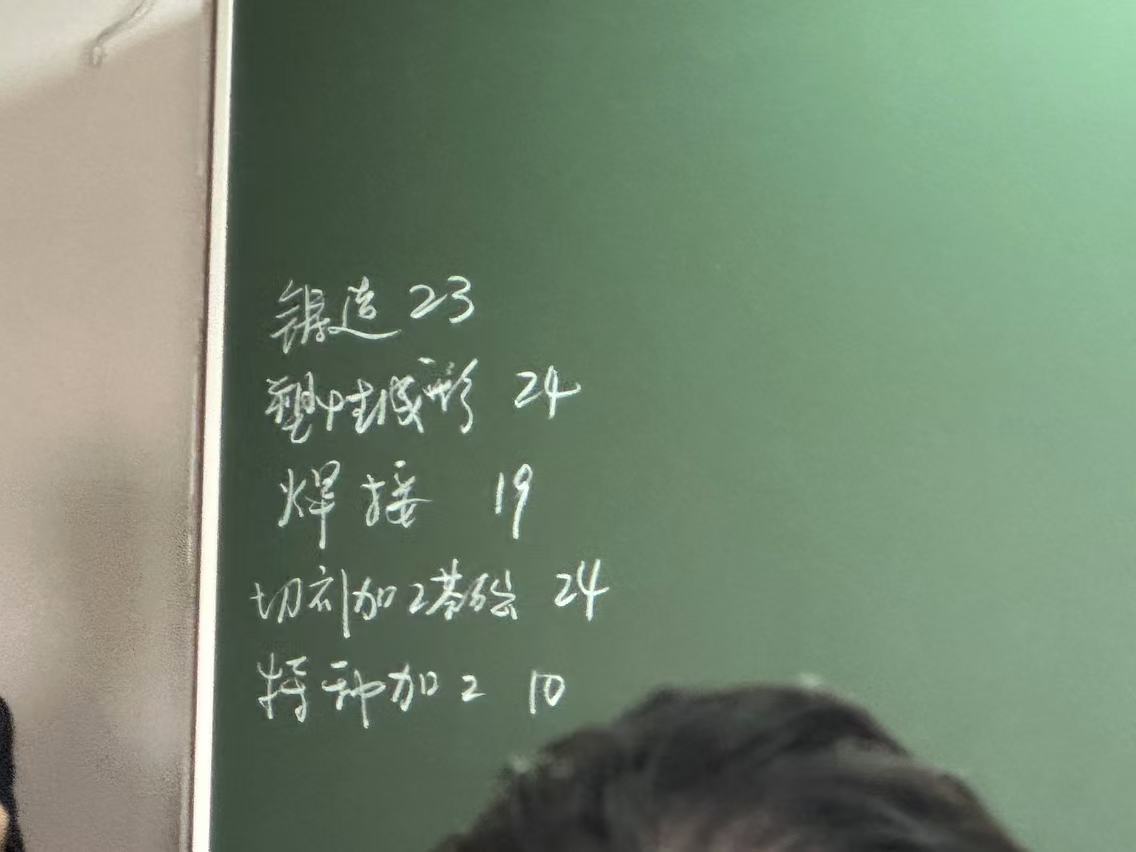 铸造 23
塑性成形 24
焊接 19
切削加工基础 24
特种加工 10